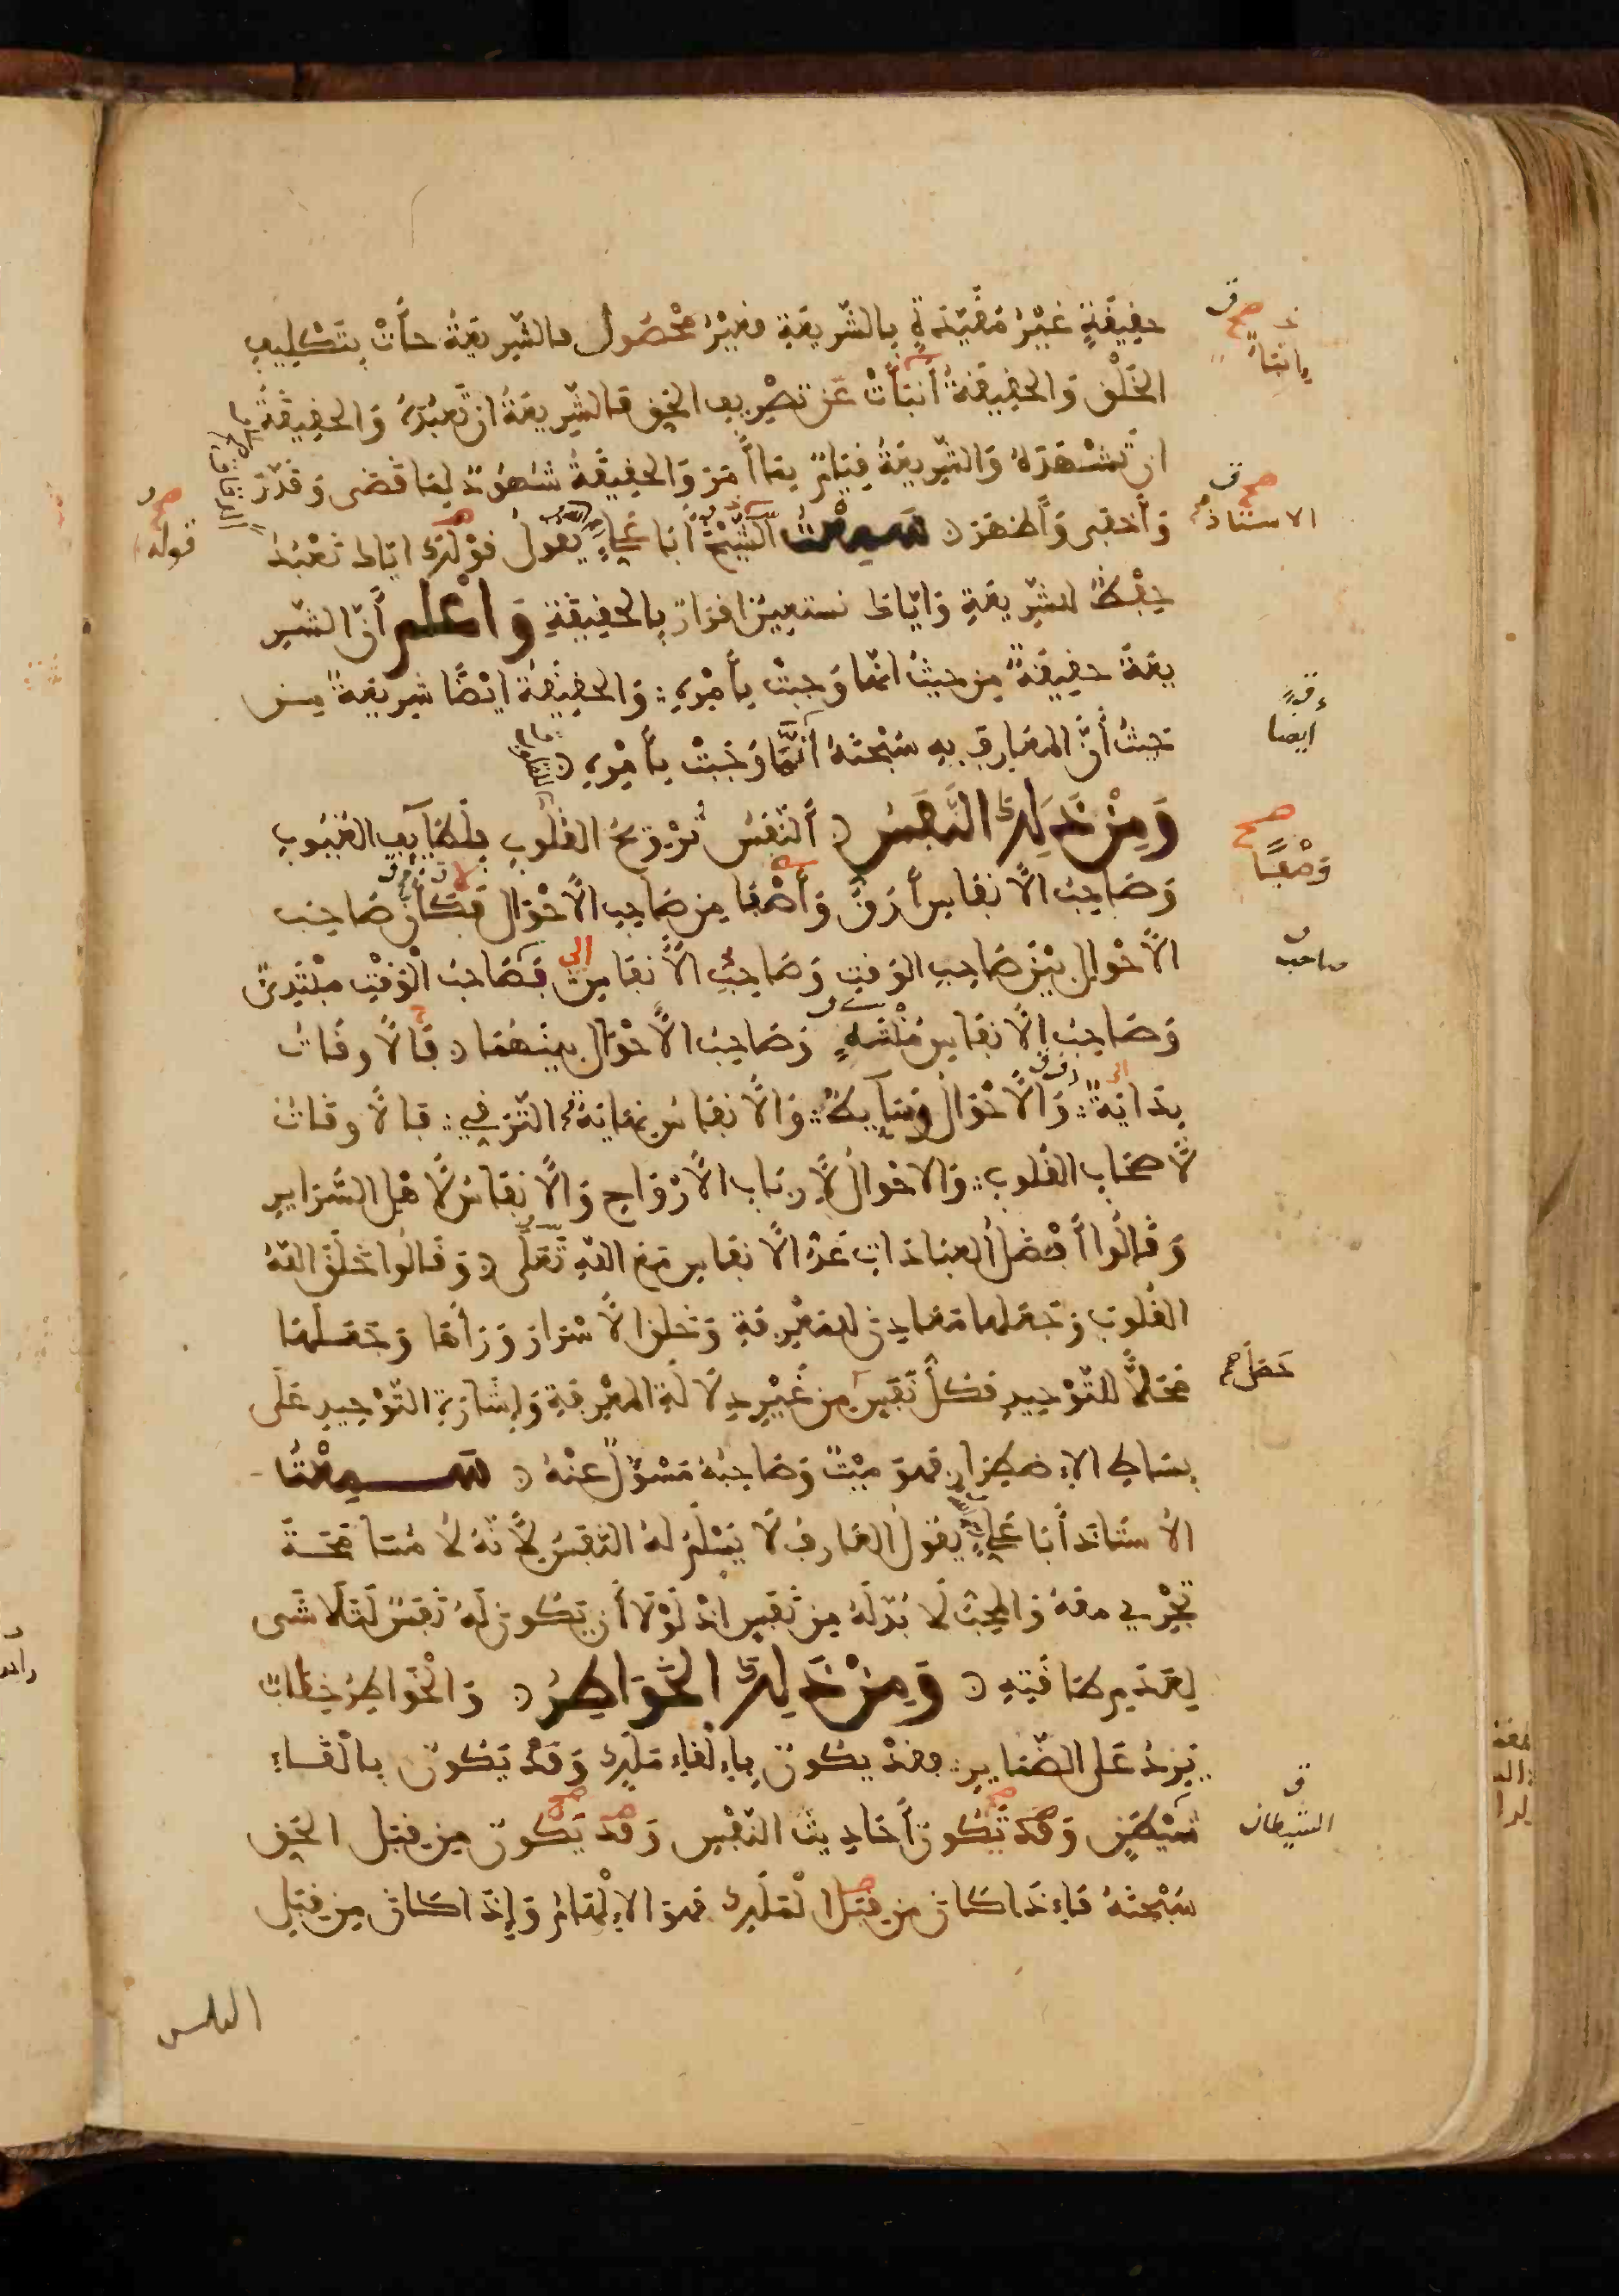 حقيقة غير مقيدة بالشريعة فغير محصول فالشريعة جاءت بتكليف
الخلق والحقيقة أنبأت عن تصريف الحق فالشريعة ان تعبده والحقيقة
ان تشهده والشريعة قيام بما أمر والحقيقة شهود لما قضى وقدر
وأخفى وأظهر سمعت الشيخ أبا علي يقول قولك اياك نعبد
حفظ للشريعة واياك نستعين اقرار بالحقيقة واعلم أن الشر
يعة حقيقة من حيث انها وجبت بأمره والحقيقة ايضا شريعة من
حيث أن المعارف به سبحنه أنها وجبت بأمره
ومن ذلك النفس ألنفس ترويح القلوب بلطايف الغيوب
وصاحب الانفاس أرق وأصفا من صاحب الاحوال فكان صاحب
الاحوال بين صاحب الوقت وصاحب الانفاس فصاحب الوقت مبتدئ
وصاحب الانفاس منته وصاحب الاحوال بينهما فالاوقات
بداية والاحوال وسايط والانفاس نهاية الترقي فالاوقات
لأصحاب القلوب والاحوال لأرباب الأرواح والانفاس لأهل السراير
وقالوا أفضل العبادات عد الانفاس مع الله تعلى وقالوا خلق الله
القلوب وجعلها معادن للمعرفة وخلق الاسرار وراها وجعلها
محلا للتوحيد فكل نفس من غير دلالة المعرفة وإشارة التوحيد على
بساط الاضطرار فهو ميت وصاحبه مسؤل عنه سمعت
الأستاذ أبا علي يقول العارف لا يسلم له النفس لأنه لا مسامحة
تجري معه والمحب لا بد له من نفس اذ لولا أن يكون له نفس لتلاشى
لعدم طاقته ومن ذلك الخواطر والخواطر خطاب
يرد على الضماير فقد يكون بإلقاء ملك وقد يكون بالقاء
شيطن وقد تكون أحاديث النفس وقد يكون من قبل الحق
سبحنه فإذا كان من قبل الملك فهو الإلهام وإذا كان من قبل
صح
الاستاذ
صح
قوله
ايضا
صح
وصفا
صاحب
جعل
الشيطان